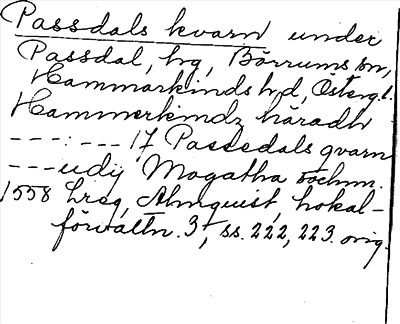 Passdals kvarn under
Passdal, hg, Börrums sn,
Hammarkinds hd, Östergl.
Hammerkindz häradh
---:---17 Passedals qvarn
---udij Mogatha sochnn.
1558 Lreg, Almquist, Lokal-
förvaltn. 3, ss. 222, 223. orig.